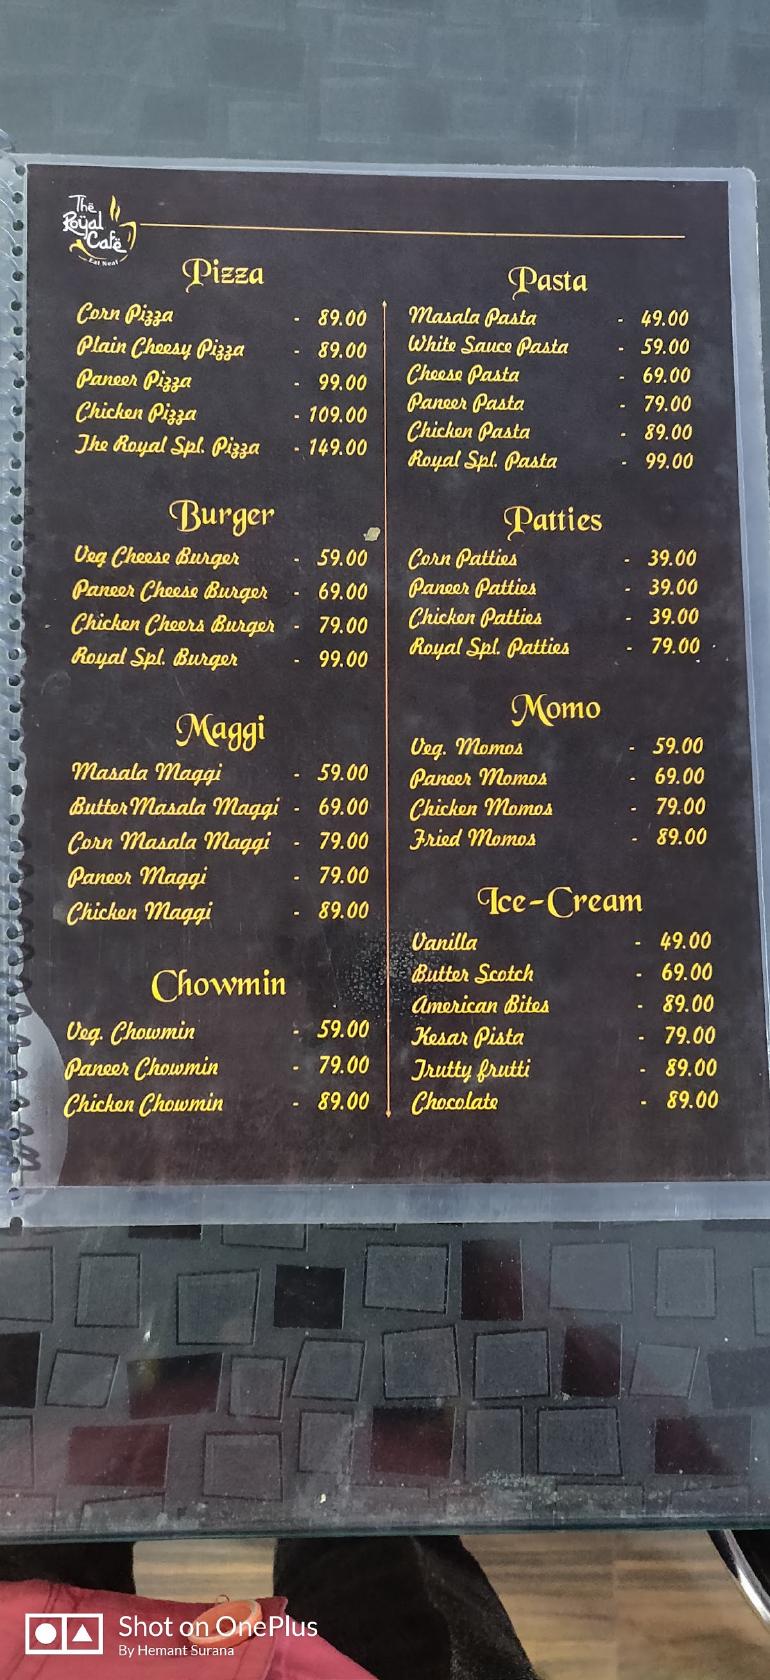 The
Royal
Café
Eat Neat
Pizza
Corn Pizza - 89.00
Plain Cheesy Pizza - 89.00
Paneer Pizza - 99.00
Chicken Pizza - 109.00
The Royal Spl. Pizza - 149.00
Burger
Veg Cheese Burger - 59.00
Paneer Cheese Burger - 69.00
Chicken Cheers Burger - 79.00
Royal Spl. Burger - 99.00
Maggi
Masala Maggi - 59.00
Butter Masala Maggi - 69.00
Corn Masala Maggi - 79.00
Paneer Maggi - 79.00
Chicken Maggi - 89.00
Chowmin
Veg. Chowmin - 59.00
Paneer Chowmin - 79.00
Chicken Chowmin - 89.00
Pasta
Masala Pasta - 49.00
White Sauce Pasta - 59.00
Cheese Pasta - 69.00
Paneer Pasta - 79.00
Chicken Pasta - 89.00
Royal Spl. Pasta - 99.00
Patties
Corn Patties - 39.00
Paneer Patties - 39.00
Chicken Patties - 39.00
Royal Spl. Patties - 79.00
Momo
Veg. Momos - 59.00
Paneer Momos - 69.00
Chicken Momos - 79.00
Fried Momos - 89.00
Ice-Cream
Vanilla - 49.00
Butter Scotch - 69.00
American Bites - 89.00
Kesar Pista - 79.00
Trutty frutti - 89.00
Chocolate - 89.00
Shot on OnePlus
By Hemant Surana